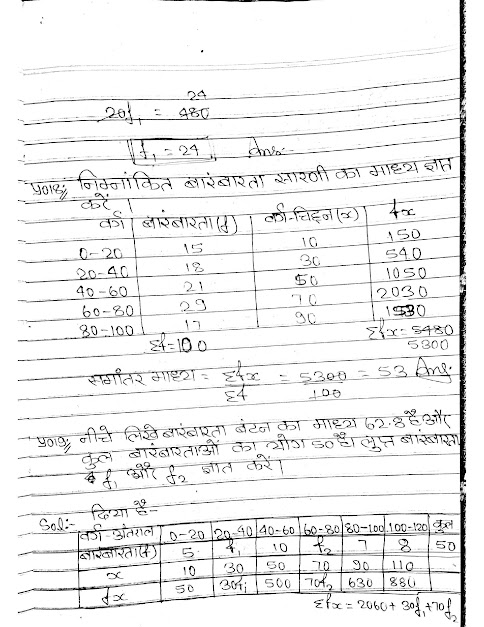 24
20f₁ = 480
f₁ = 24 Ans:-
प्र018:; निम्नांकित बारंबारता सारणी का माध्य ज्ञात
करें।
वर्ग बारंबारता(f) वर्ग-चिह्न(x) fx
0-20 15 10 150
20-40 18 30 540
40-60 21 50 1050
60-80 29 70 2030
80-100 17 90 1530
Σf=100 Σfx=5480
5300
समांतर माध्य = Σfx/Σf = 5300/100 = 53 Ans:
प्र019:; नीचे लिखे बारंबारता बंटन का माध्य 62.8 है और
कुल बारंबारताओं का योग 50 है। लुप्त बारंबारता
f₁ और f₂ ज्ञात करें।
Sol:- दिया है-
वर्ग-अंतराल 0-20 20-40 40-60 60-80 80-100 100-120 कुल
बारंबारता(f) 5 f₁ 10 f₂ 7 8 50
x 10 30 50 70 90 110
fx 50 30f₁ 500 70f₂ 630 880
Σfx = 2060+30f₁+70f₂